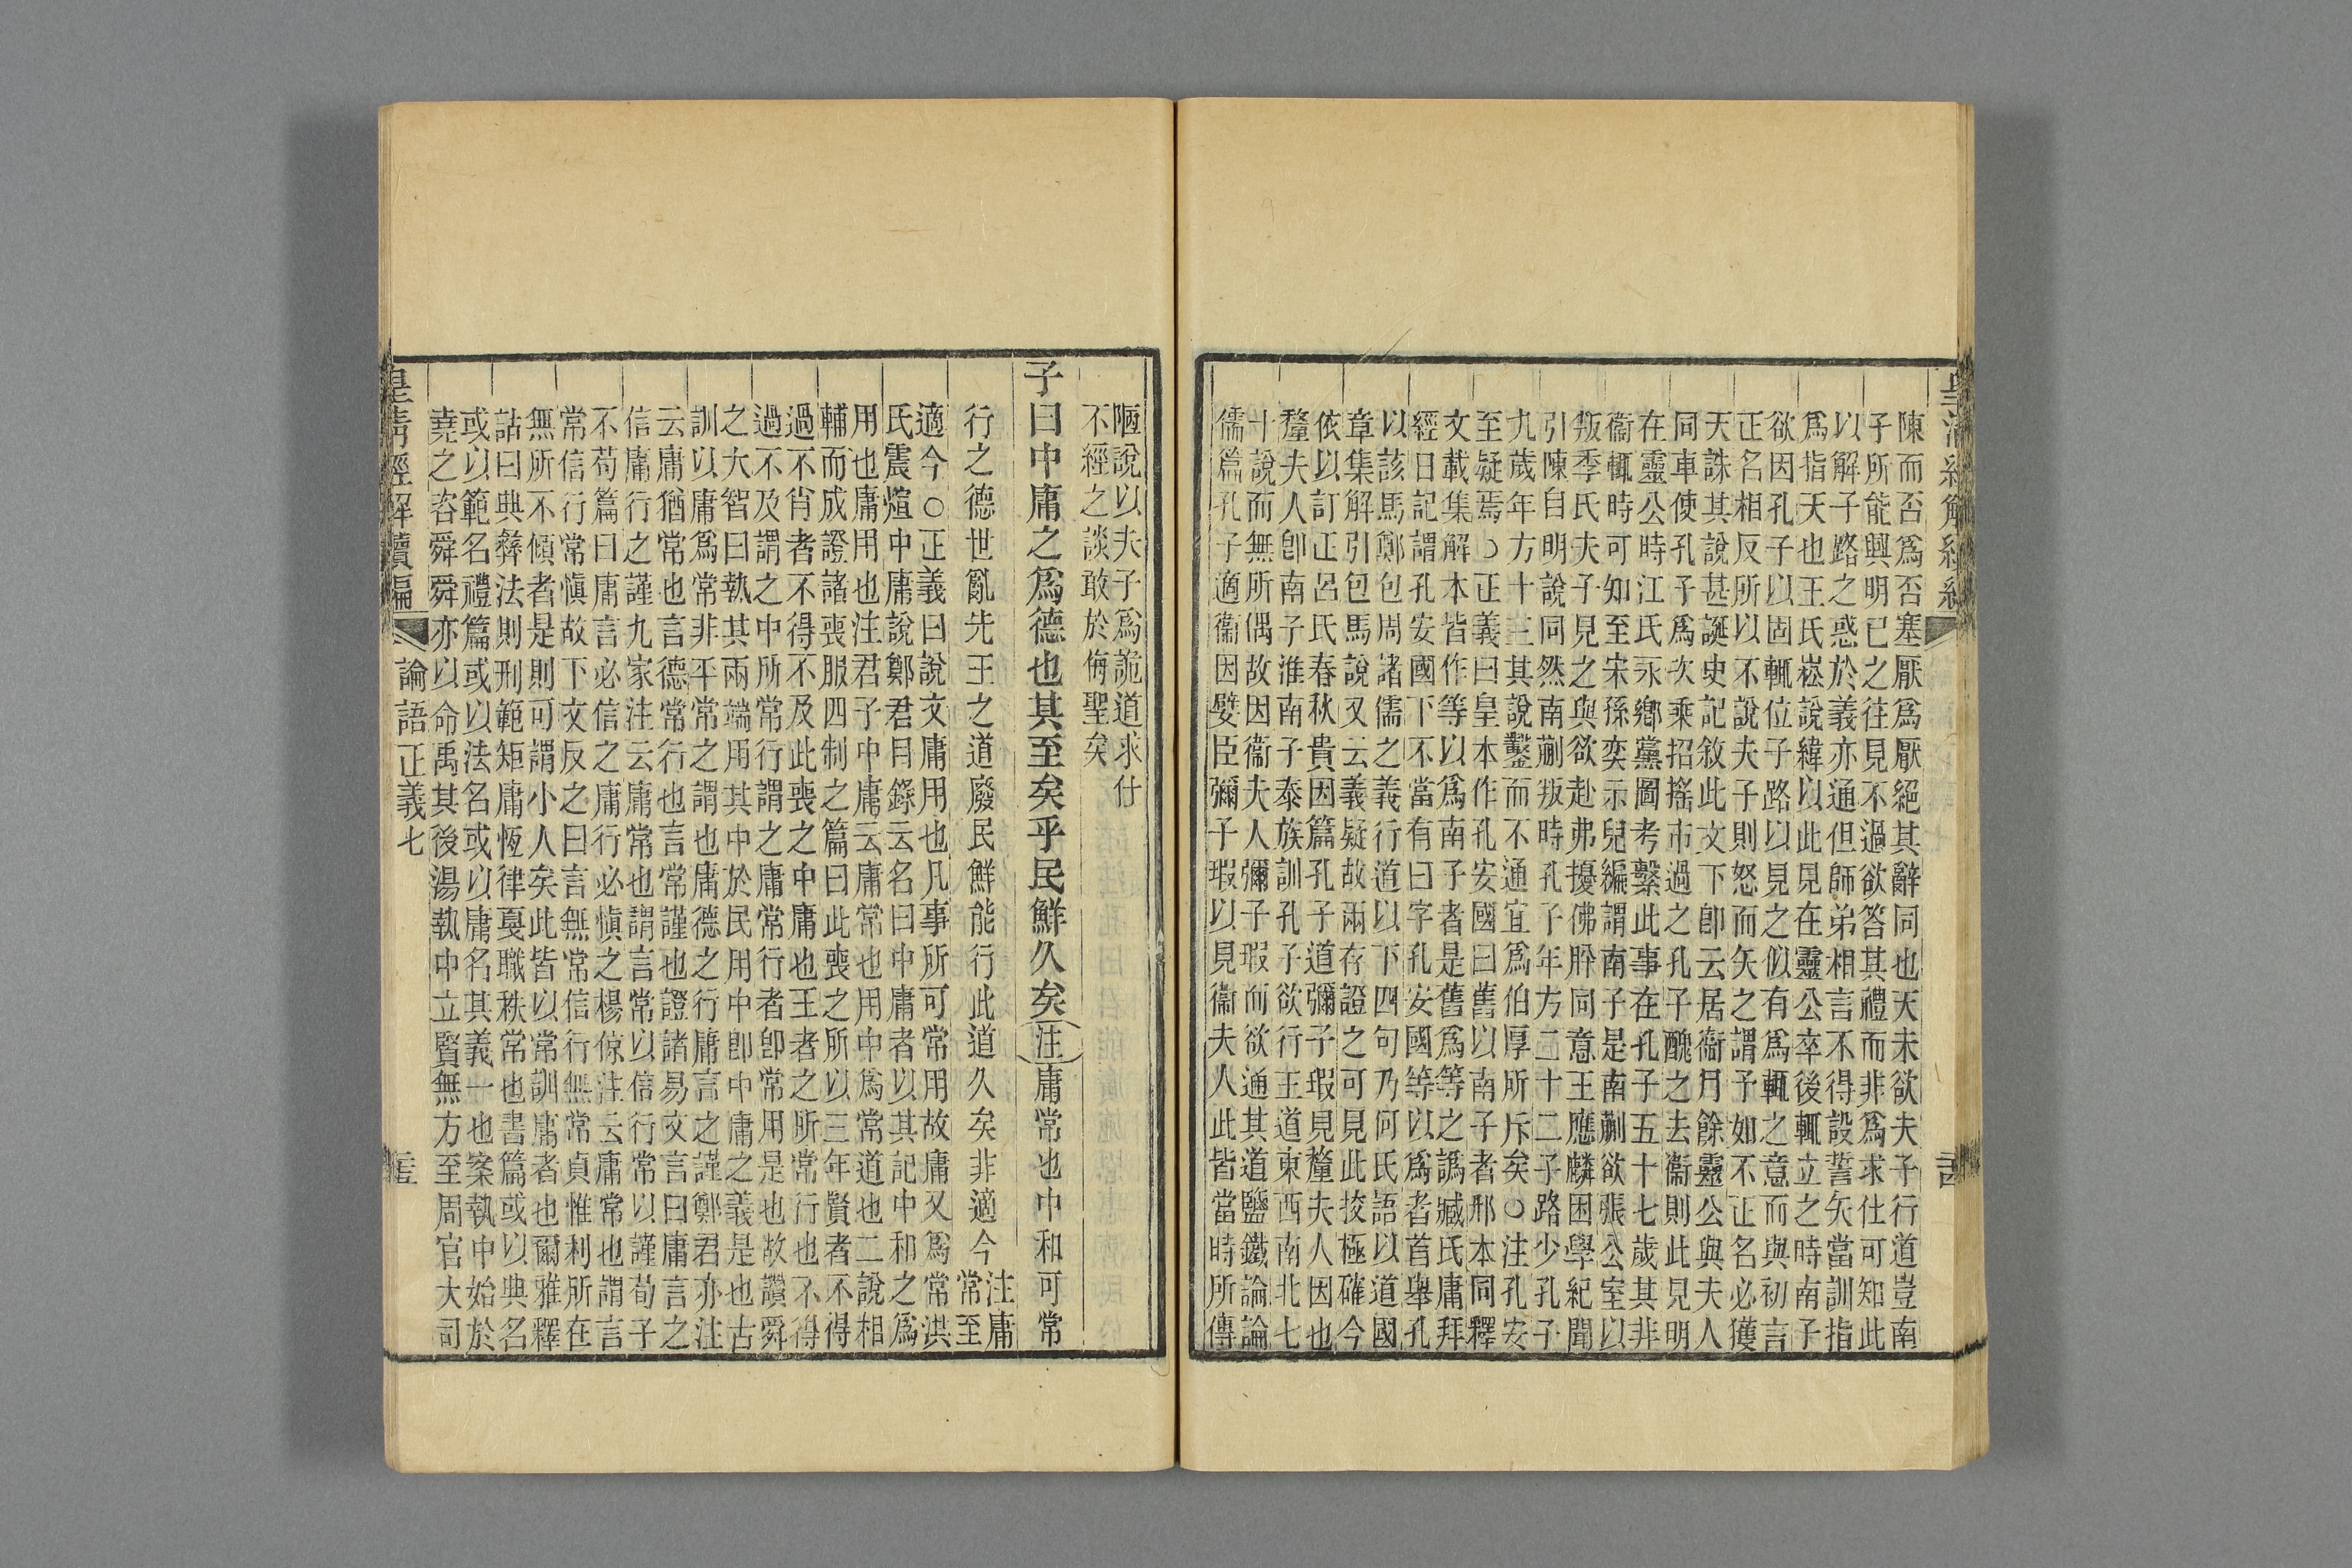 陳而否爲否塞厭爲厭絕其辭同也天未欲夫子行道豈南
子所能興明已之往見不過欲答其禮而非爲求仕可知此
以解子路之惑於義亦通但師弟相言不得設誓矢當訓指
爲指天也王氏崧說緯以此見在靈公卒後輒立之時南子
欲因孔子以固輒位子路以見之似有爲輒之意而與初言
正名相反所以不說夫子則怒而矢之謂予如不正名必獲
天誅其說甚誕史記敘此文下卽云居衞月餘靈公與夫人
同車使孔子爲次乘招搖市過之孔子醜之去衞則此見明
在靈公時江氏永鄉黨圖考繫此事在孔子五十七歲其非
衞輒時可知至宋孫奕示兒編謂南子是南蒯欲張公室以
叛季氏夫子見之與欲赴弗擾佛肸同意王應麟困學紀聞
引陳自明說同然南蒯叛時孔子年方二十二子路少孔子
九歲年方十三其說鑿而不通宜爲伯厚所斥矣○注孔安
至疑焉○正義曰皇本作孔安國曰舊以南子者邢本同釋
文載集解本皆作等以爲南子者是舊爲等之譌臧氏庸拜
經日記謂孔安國下不當有曰字孔安國等以爲者首舉孔
以該馬鄭包周諸儒之義行道以下四句乃何氏語以道國
章集解引包馬說又云義疑故兩存證之可見此挍極確今
依以訂正呂氏春秋貴因篇孔子道彌子瑕見釐夫人因也
釐夫人卽南子淮南子泰族訓孔子欲行王道東西南北七
十說而無所偶故因衞夫人彌子瑕而欲通其道鹽鐵論論
儒篇孔子適衞因嬖臣彌子瑕以見衞夫人此皆當時所傳
陋說以夫子爲詭道求仕
不經之談敢於侮聖矣
子曰中庸之爲德也其至矣乎民鮮久矣注庸常也中和可常
行之德世亂先王之道廢民鮮能行此道久矣非適今注庸
常至
適今○正義曰說文庸用也凡事所可常用故庸又爲常洪
氏震煊中庸說鄭君目錄云名曰中庸者以其記中和之爲
用也庸用也注君子中庸云庸常也用中爲常道也二說相
輔而成證諸喪服四制之篇曰此喪之所以三年賢者不得
過不肖者不得不及此喪之中庸也王者之所常行也不得
過不及謂之中所常行謂之庸常行者卽常用是也故讚舜
之大智曰執其兩端用其中於民用中卽中庸之義是也古
訓以庸爲常非平常之謂也庸德之行庸言之謹鄭君亦注
云庸猶常也言德常行也言常謹也證諸易文言曰庸言之
信庸行之謹九家注云庸常也謂言常以信行常以謹荀子
不苟篇曰庸言必信之庸行必愼之楊倞注云庸常也謂言
常信行常愼故下文反之曰言無常信行無常貞惟利所在
無所不傾者是則可謂小人矣此皆以常訓庸者也爾雅釋
詁曰典彝法則刑範矩庸恆律戛職秩常也書篇或以典名
或以範名禮篇或以法名或以庸名其義一也案執中始於
堯之咨舜舜亦以命禹其後湯執中立賢無方至周官大司
皇淸經解續編
論語正義七